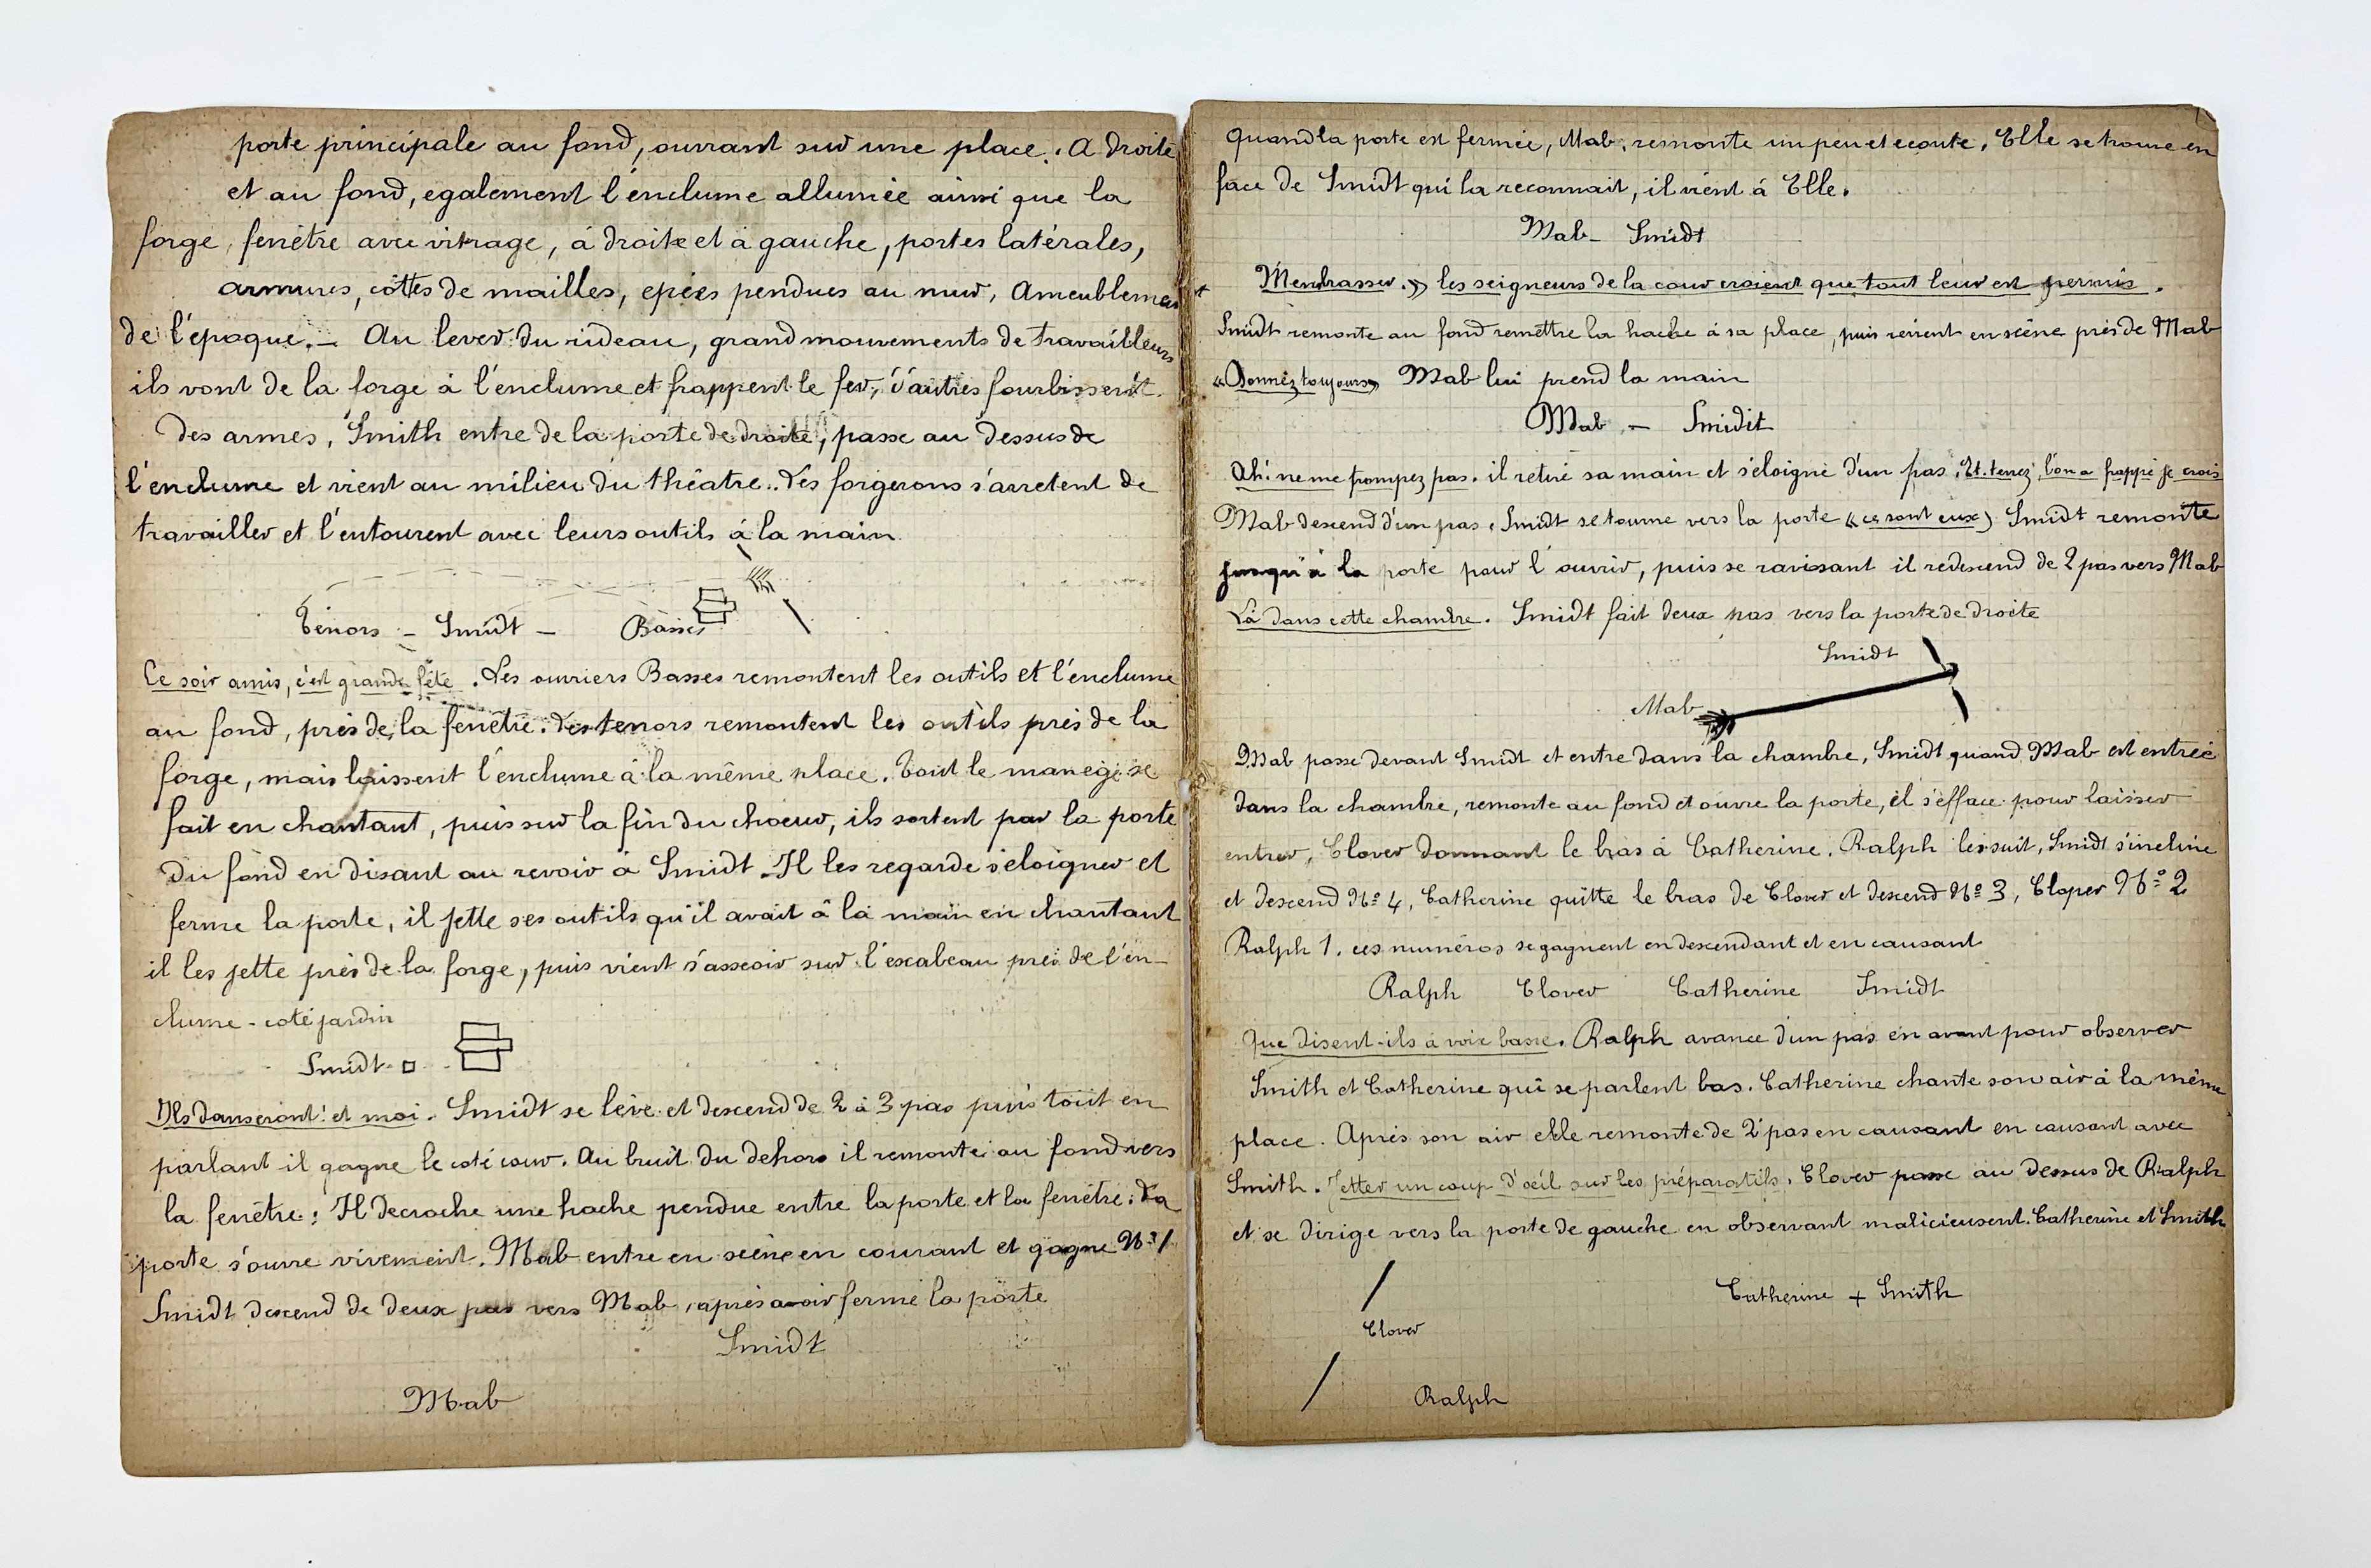 porte principale au fond, ouvrant sur une place. A droite
et au fond, egalement l'enclume allumée ainsi que la
forge, fenêtre avec vitrage, à droite et à gauche, portes latérales,
armures, cottes de mailles, epées pendues au mur, Ameublement
de l'époque. – Au lever du rideau, grand mouvements de travailleurs
ils vont de la forge à l'enclume et frappent le fer, d'autres fourbissent
des armes, Smith entre de la porte de droite, passe au dessus de
l'enclume et vient au milieu du théatre. Les forgerons s'arretent de
travailler et l'entourent avec leurs outils à la main
Ténors – Smidt – Basses
Ce soir amis, c'est grande fête. Les ouvriers Basses remontent les outils et l'enclume
au fond, près de la fenêtre. Les tenors remontent les outils près de la
forge, mais laissent l'enclume à la même place. Tout le manege se
fait en chantant, puis sur la fin du choeur, ils sortent par la porte
du fond en disant au revoir à Smidt. Il les regarde s'eloigner et
ferme la porte, il jette ses outils qu'il avait à la main en chantant
il les jette près de la forge, puis vient s'asseoir sur l'escabeau près de l'en-
clume - coté jardin
Smidt
Ils danseront! et moi. Smidt se lève et descend de 2 à 3 pas puis tout en
parlant il gagne le coté cour. Au bruit du dehors il remonte au fond vers
la fenêtre; Il decroche une hache pendue entre la porte et la fenêtre. La
porte s'ouvre vivement. Mab entre en scène en courant et gagne Nº 1
Smidt descend de deux pas vers Mab, après avoir fermé la porte
Smidt
Mab
Quand la porte est fermée, Mab, remonte un peu et ecoute, Elle se trouve en
face de Smidt qui la reconnait, il vient à Elle.
Mab – Smidt
M'embrasser » les seigneurs de la cour croient que tout leur est permis.
Smidt remonte au fond remettre la hache à sa place, puis revient en scène près de Mab
« Donnez toujours » Mab lui prend la main
Mab – Smidit
Ah! ne me trompez pas. il retire sa main et s'éloigne d'un pas, Et tenez, l'on a frappé je crois
Mab descend d'un pas, Smidt se tourne vers la porte « ce sont eux » Smidt remonte
jusqu'à la porte pour l'ouvrir, puis se ravisant il redescend de 2 pas vers Mab
Là dans cette chambre. Smidt fait deux pas vers la porte de droite
Smidt
Mab
Mab passe devant Smidt et entre dans la chambre, Smidt quand Mab est entrée
dans la chambre, remonte au fond et ouvre la porte, il s'efface pour laisser
entrer, Clover donnant le bras à Catherine. Ralph les suit, Smidt s'incline
et descend Nº 4, Catherine quitte le bras de Clover et descend Nº 3, Cloper Nº 2
Ralph 1. ces numéros se gagnent en descendant et en causant
Ralph Clover Catherine Smidt
Que disent-ils à voix basse. Ralph avance d'un pas en avant pour observer
Smith et Catherine qui se parlent bas. Catherine chante son air à la même
place. Après son air elle remonte de 2 pas en causant en causant avec
Smith. Jetter un coup d'oeil sur les préparatifs, Clover passe au dessus de Ralph
et se dirige vers la porte de gauche en observant malicieusent. Catherine et Smith
Catherine + Smith
Clover
Ralph